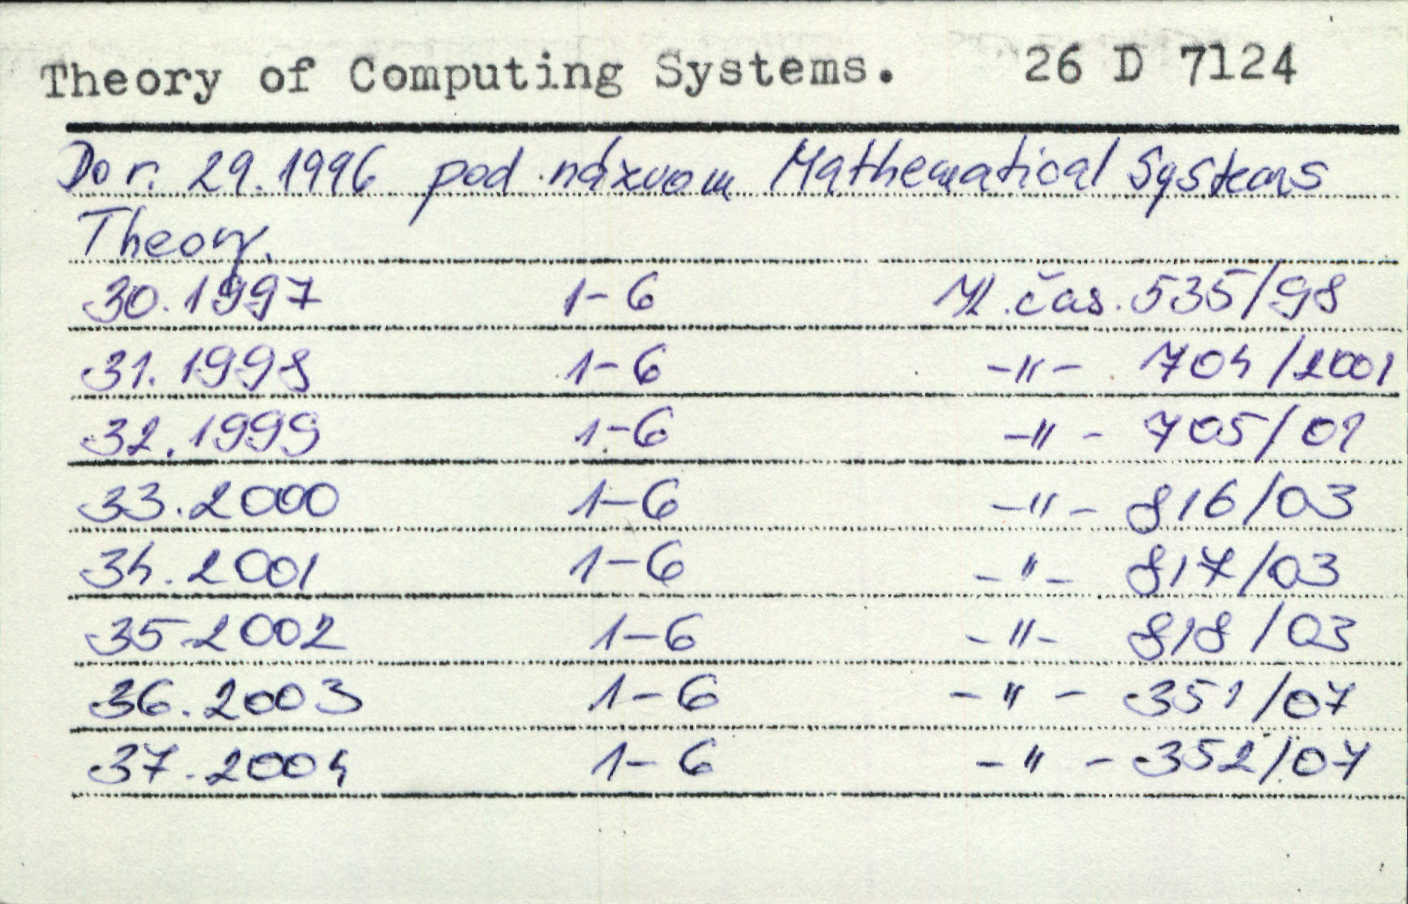 Theory of Computing Systems. 26 D 7124
Do r. 29.1996 pod názvom Mathematical Systems
Theory.
30.1997 1-6 čas. 535/98
31.1998 1-6 -"- 704/2001
32.1999 1-6 -"- 705/01
33.2000 1-6 -"- 816/03
34.2001 1-6 -"- 817/03
35.2002 1-6 -"- 818/03
36.2003 1-6 -"- 351/07
37.2004 1-6 -"- 352/07